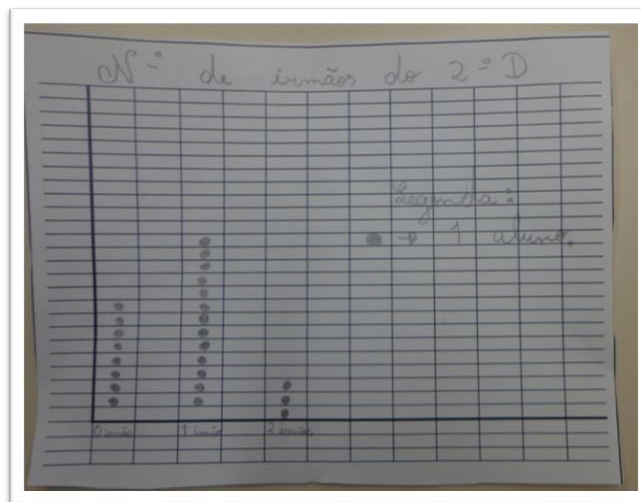 Nº de irmãos do 2º D
Legenda:
→ 1 aluno.
0 irmão 1 irmão 2 irmãos